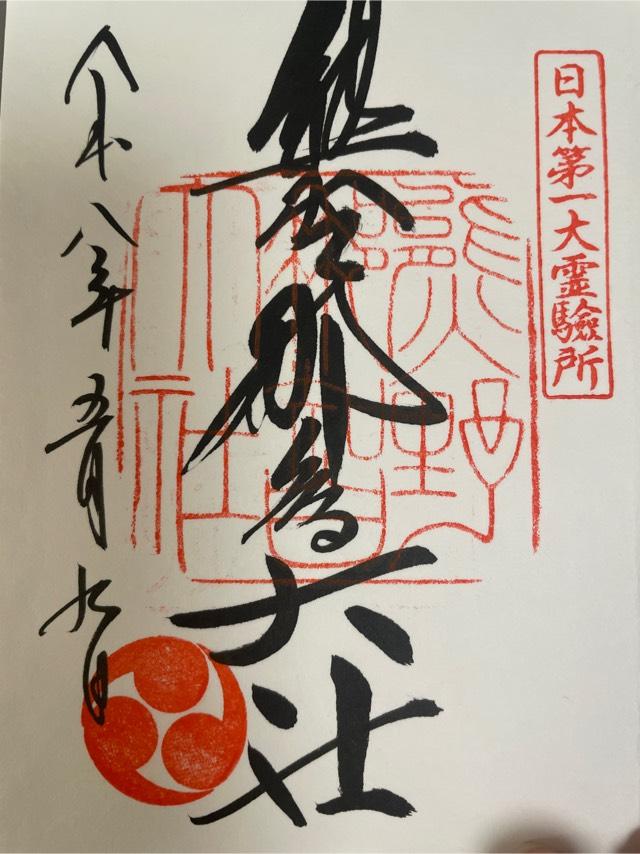 日本第一大霊驗所
熊野那智大社
熊野
大社
令和八年五月九日